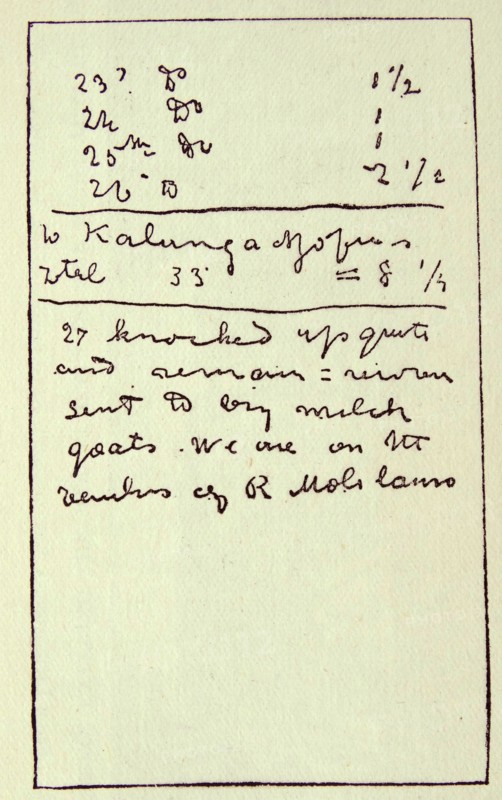 23 Do 1 1/2
24 Do 1
25th Do 1
26 Do 2 1/2
to Kalunganjofu s
total 33 = 8 1/4
27 knocked up quite
and remain = recover
sent to buy milch
goats . We are on the
banks of R Molilamo